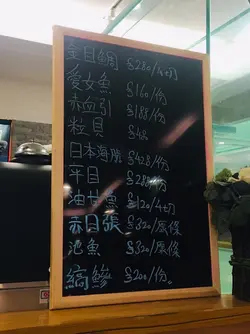 金目鯛 $280/4切
愛女魚 $160/份
赤血引 $188/份
粒貝 $48
日本海腸 $428/份
平目 $288/份
油甘魚 $120/4切
赤目張 $320/原條
池魚 $320/原條
縞鰺 $200/份。